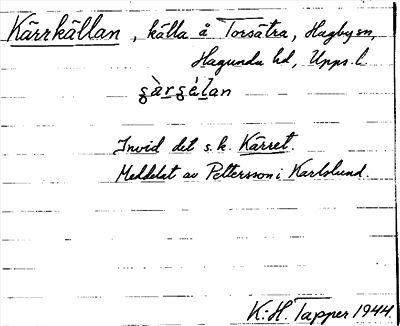 Kärrkällan, källa å Torsätra, Hagby sn,
Hagunda hd, Upps. l.
Invid det s.k. Kärret.
Meddelat av Pettersson i Karlslund.
K.H. Tapper 1944.